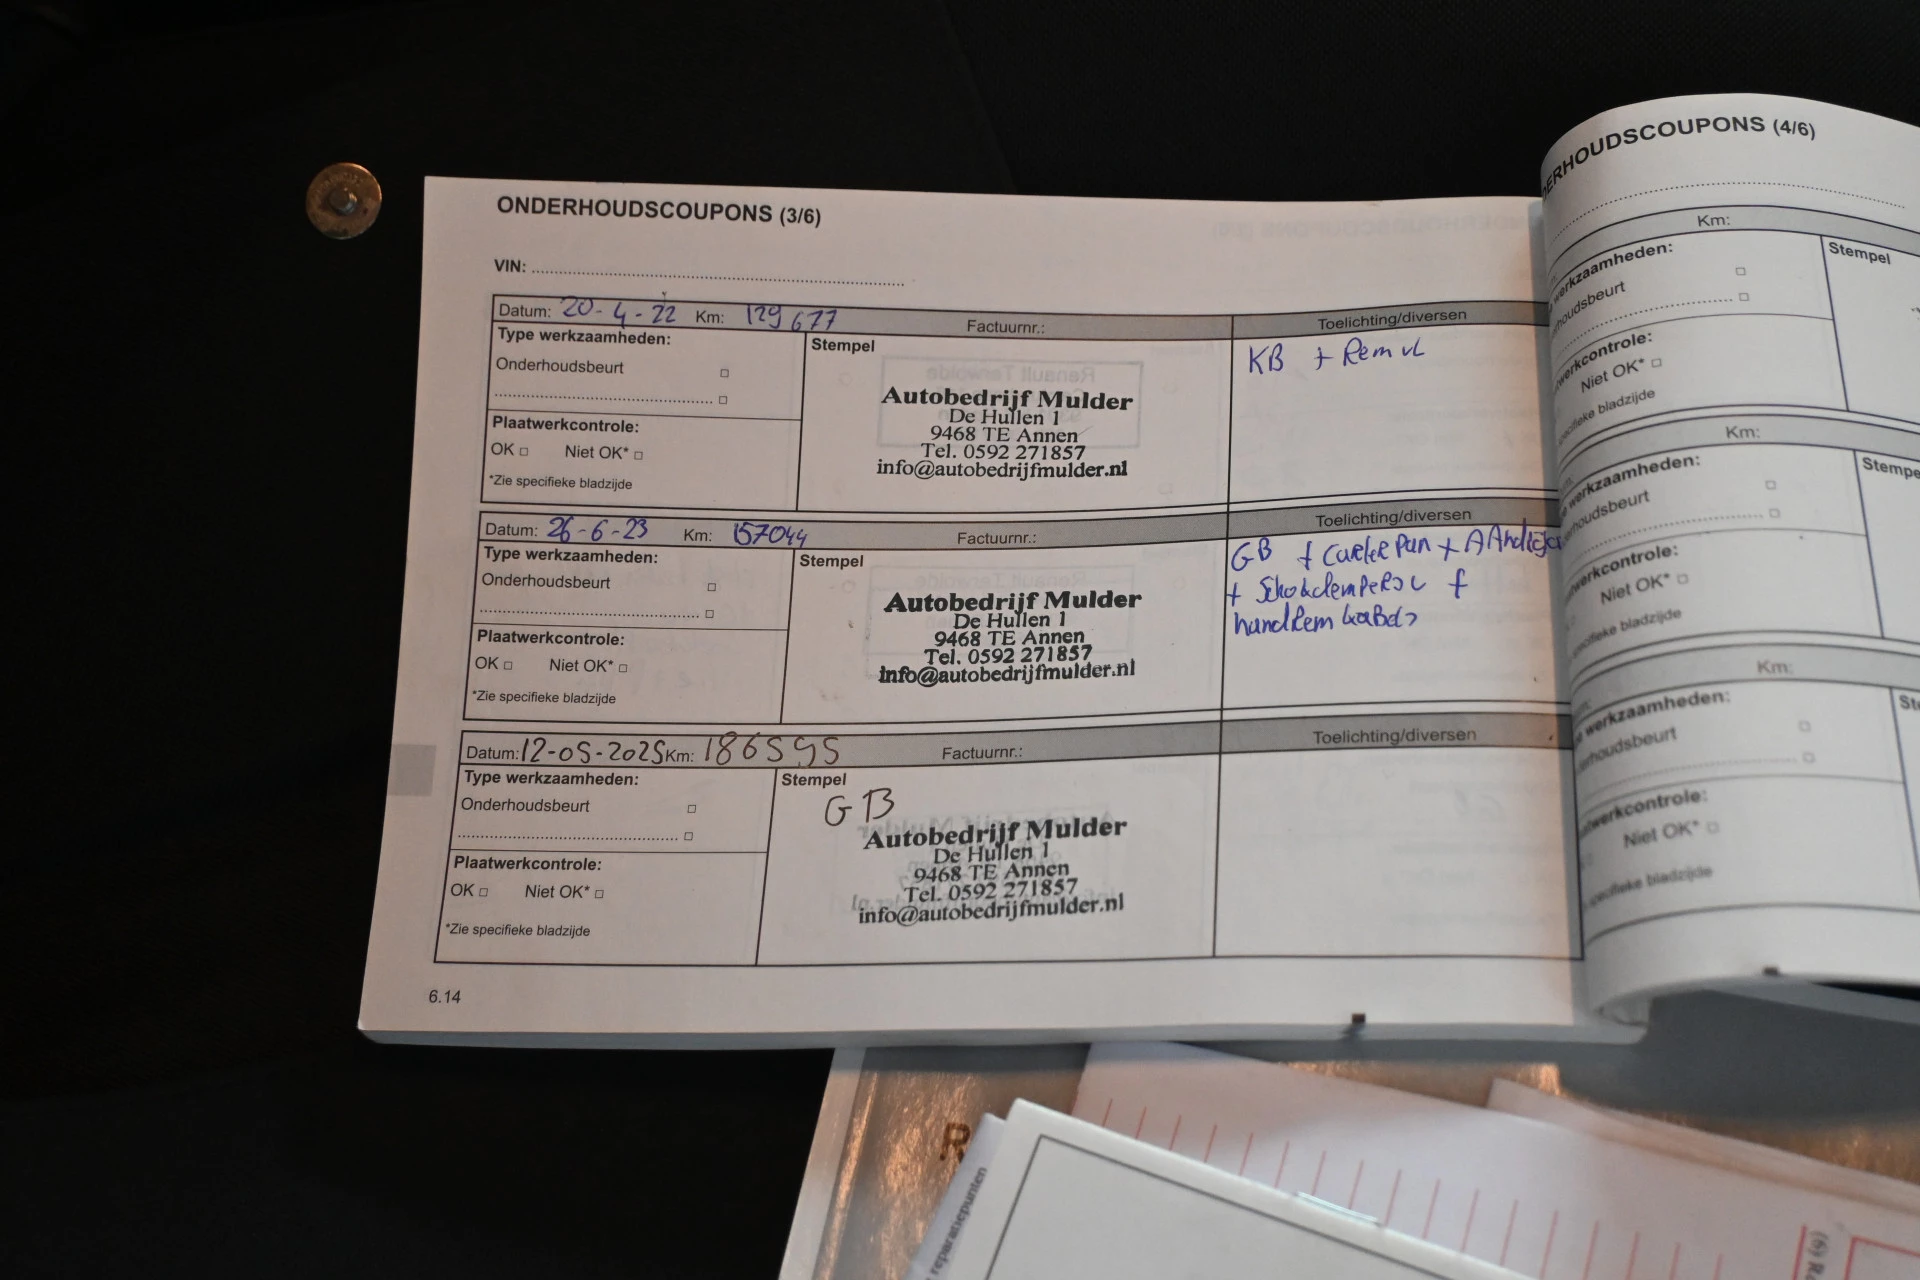 ONDERHOUDSCOUPONS (3/6)
VIN:
Datum: 20-4-22 Km: 129677 Factuurnr.: Toelichting/diversen
Type werkzaamheden:
Onderhoudsbeurt
Plaatwerkcontrole:
OK Niet OK*
*Zie specifieke bladzijde
Stempel
Autobedrijf Mulder
De Hullen 1
9468 TE Annen
Tel. 0592 271857
info@autobedrijfmulder.nl
KB + Rem vL
Datum: 26-6-23 Km: 157044 Factuurnr.: Toelichting/diversen
Type werkzaamheden:
Onderhoudsbeurt
Plaatwerkcontrole:
OK Niet OK*
*Zie specifieke bladzijde
Stempel
Autobedrijf Mulder
De Hullen 1
9468 TE Annen
Tel. 0592 271857
info@autobedrijfmulder.nl
GB + carterpan +
+ Schokdempers +
handremkabel
Datum: 12-05-2025 Km: 186595 Factuurnr.: Toelichting/diversen
Type werkzaamheden:
Onderhoudsbeurt
Plaatwerkcontrole:
OK Niet OK*
*Zie specifieke bladzijde
Stempel
GB
Autobedrijf Mulder
De Hullen 1
9468 TE Annen
Tel. 0592 271857
info@autobedrijfmulder.nl
6.14
ERHOUDSCOUPONS (4/6)
Km:
werkzaamheden:
Stempel
houdsbeurt
werkcontrole:
Niet OK*
specifieke bladzijde
Km:
werkzaamheden:
Stempe
houdsbeurt
werkcontrole:
Niet OK*
specifieke bladzijde
Km:
werkzaamheden:
St
rhoudsbeurt
twerkcontrole:
Niet OK*
specifieke bladzijde
R
reparatiepunten